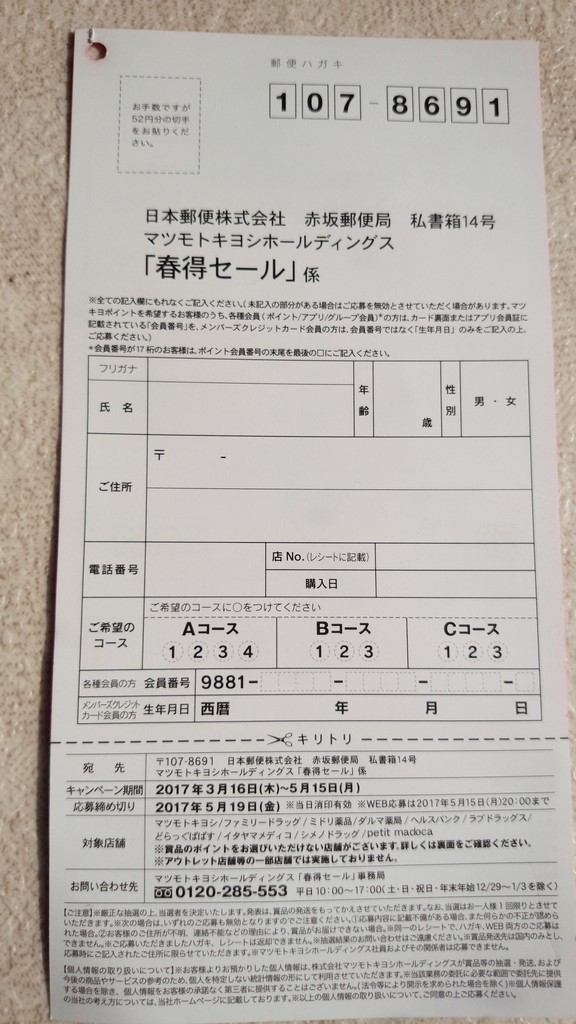 郵便ハガキ
お手数ですが
52円分の切手
をお貼りくだ
さい。
107-8691
日本郵便株式会社 赤坂郵便局 私書箱14号
マツモトキヨシホールディングス
「春得セール」係
※全ての記入欄にもれなくご記入ください。(未記入の部分がある場合はご応募を無効とさせていただく場合があります。マツ
キヨポイントを希望するお客様のうち、各種会員(ポイント/アプリ/グループ会員)*の方は、カード裏面またはアプリ会員証に
記載されている「会員番号」を、メンバーズクレジットカード会員の方は、会員番号ではなく「生年月日」のみをご記入の上、
ご応募ください。)
*会員番号が17桁のお客様は、ポイント会員番号の末尾を最後の□にご記入ください。
フリガナ
氏名
年齢
歳
性別
男・女
ご住所
〒 -
電話番号
店No.(レシートに記載)
購入日
ご希望の
コース
ご希望のコースに○をつけてください
Aコース
1 2 3 4
Bコース
1 2 3
Cコース
1 2 3
各種会員の方 会員番号 9881- - - -
メンバーズクレジット
カード会員の方 生年月日 西暦 年 月 日
キリトリ
宛先
〒107-8691 日本郵便株式会社 赤坂郵便局 私書箱14号
マツモトキヨシホールディングス「春得セール」係
キャンペーン期間 2017年3月16日(木)~5月15日(月)
応募締め切り 2017年5月19日(金) ※当日消印有効 ※WEB応募は2017年5月15日(月)20:00まで
対象店舗
マツモトキヨシ/ファミリードラッグ/ミドリ薬品/ダルマ薬局/ヘルスバンク/ラブドラッグス/
どらっぐぱぱす/イタヤマメディコ/シメノドラッグ/petit madoca
※賞品のポイントをお選びいただけない店舗がございます。詳しくは裏面をご確認ください。
※アウトレット店舗等の一部店舗では実施しておりません。
お問い合わせ先
マツモトキヨシホールディングス「春得セール」事務局
0120-285-553 平日10:00~17:00(土・日・祝日・年末年始12/29~1/3を除く)
【ご注意】※厳正な抽選の上、当選者を決定いたします。発表は、賞品の発送をもってかえさせていただきます。なお、当選はお一人様1回限りとさせて
いただきます。※次の場合は、いずれのご応募も無効となりますのでご注意ください。①応募内容に記載不備がある場合、また何らかの不正が認めら
れた場合。②お客様のご住所が不明、連絡不能などの理由により、賞品がお届けできない場合。※同一のレシートで、ハガキ、WEB両方のご応募は
できません。※ご応募いただきましたハガキ、レシートは返却できません。※抽選結果のお問い合わせはご遠慮ください。※賞品発送先は国内のみとし、
応募時にご記入されたご住所に限らせていただきます。※マツモトキヨシ社員およびその関係者は応募できません。
【個人情報の取り扱いについて】※お客様よりお預かりした個人情報は、株式会社マツモトキヨシホールディングスが賞品等の抽選・発送、および
今後の商品やサービスの参考のため、個人を特定しない統計情報の形にして利用させていただきます。※当該業務の委託に必要な範囲で委託先に提供
する場合を除き、個人情報をお客様の承諾なく第三者に提供することはございません。(法令等により開示を求められた場合を除く)※個人情報保護
の当社の考え方については、当社ホームページに記載しております。※以上の個人情報の取り扱いについて、ご同意の上ご応募ください。